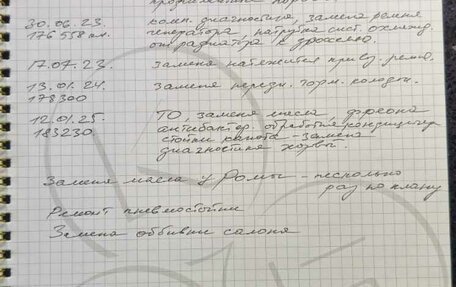 30.06.23. комп. диагностика, замена ремня
176 558 км. генератора, патрубка сист. охлажд.
от радиатора к дросселю.
17.07.23. замена натяжителя привод. ремня.
13.01.24. замена передн. торм. колодок.
178300
12.01.25. ТО, замена масла, фреона
183230 антибактер. обработка кондиционера
стойки капота - замена
диагностика ходвы.
Замена масла у Ромы - несколько
раз по плану
Ремонт пневмостойки
Замена оббивки салона